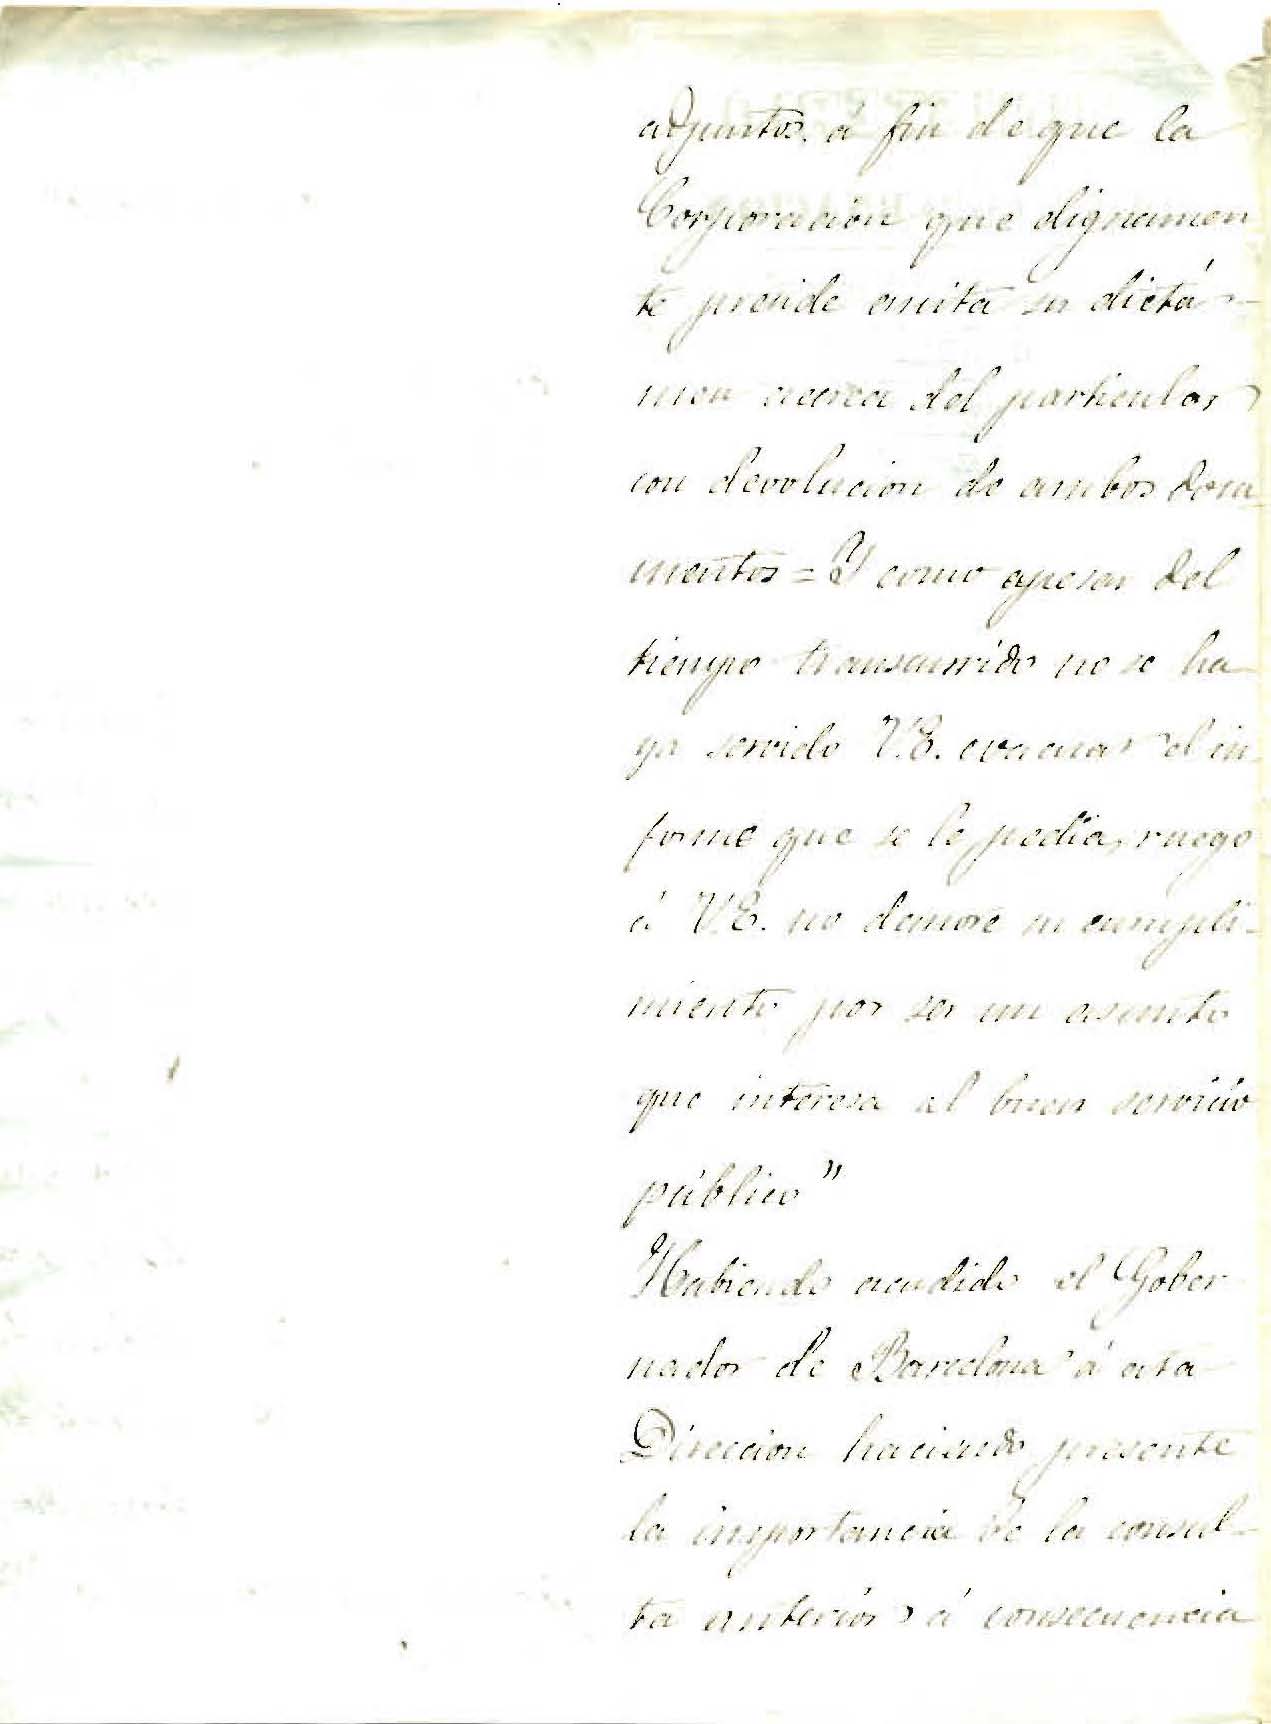 adjuntos, á fin de que la
Corporacion que dignamen
te preside emita su dictá-
men acerca del particular
con devolucion de ambos docu
mentos = Y como apesar del
tiempo transcurrido no se ha
ya servido V.E. evacuar el in-
forme que se le pedia, ruego
á V.E. no demore su cumpli-
miento por ser un asunto
que interesa al buen servicio
público"
Habiendo acudido el Gober
nador de Barcelona á esta
Direccion haciendo presente
la importancia de la consul-
ta anterior á consecuencia